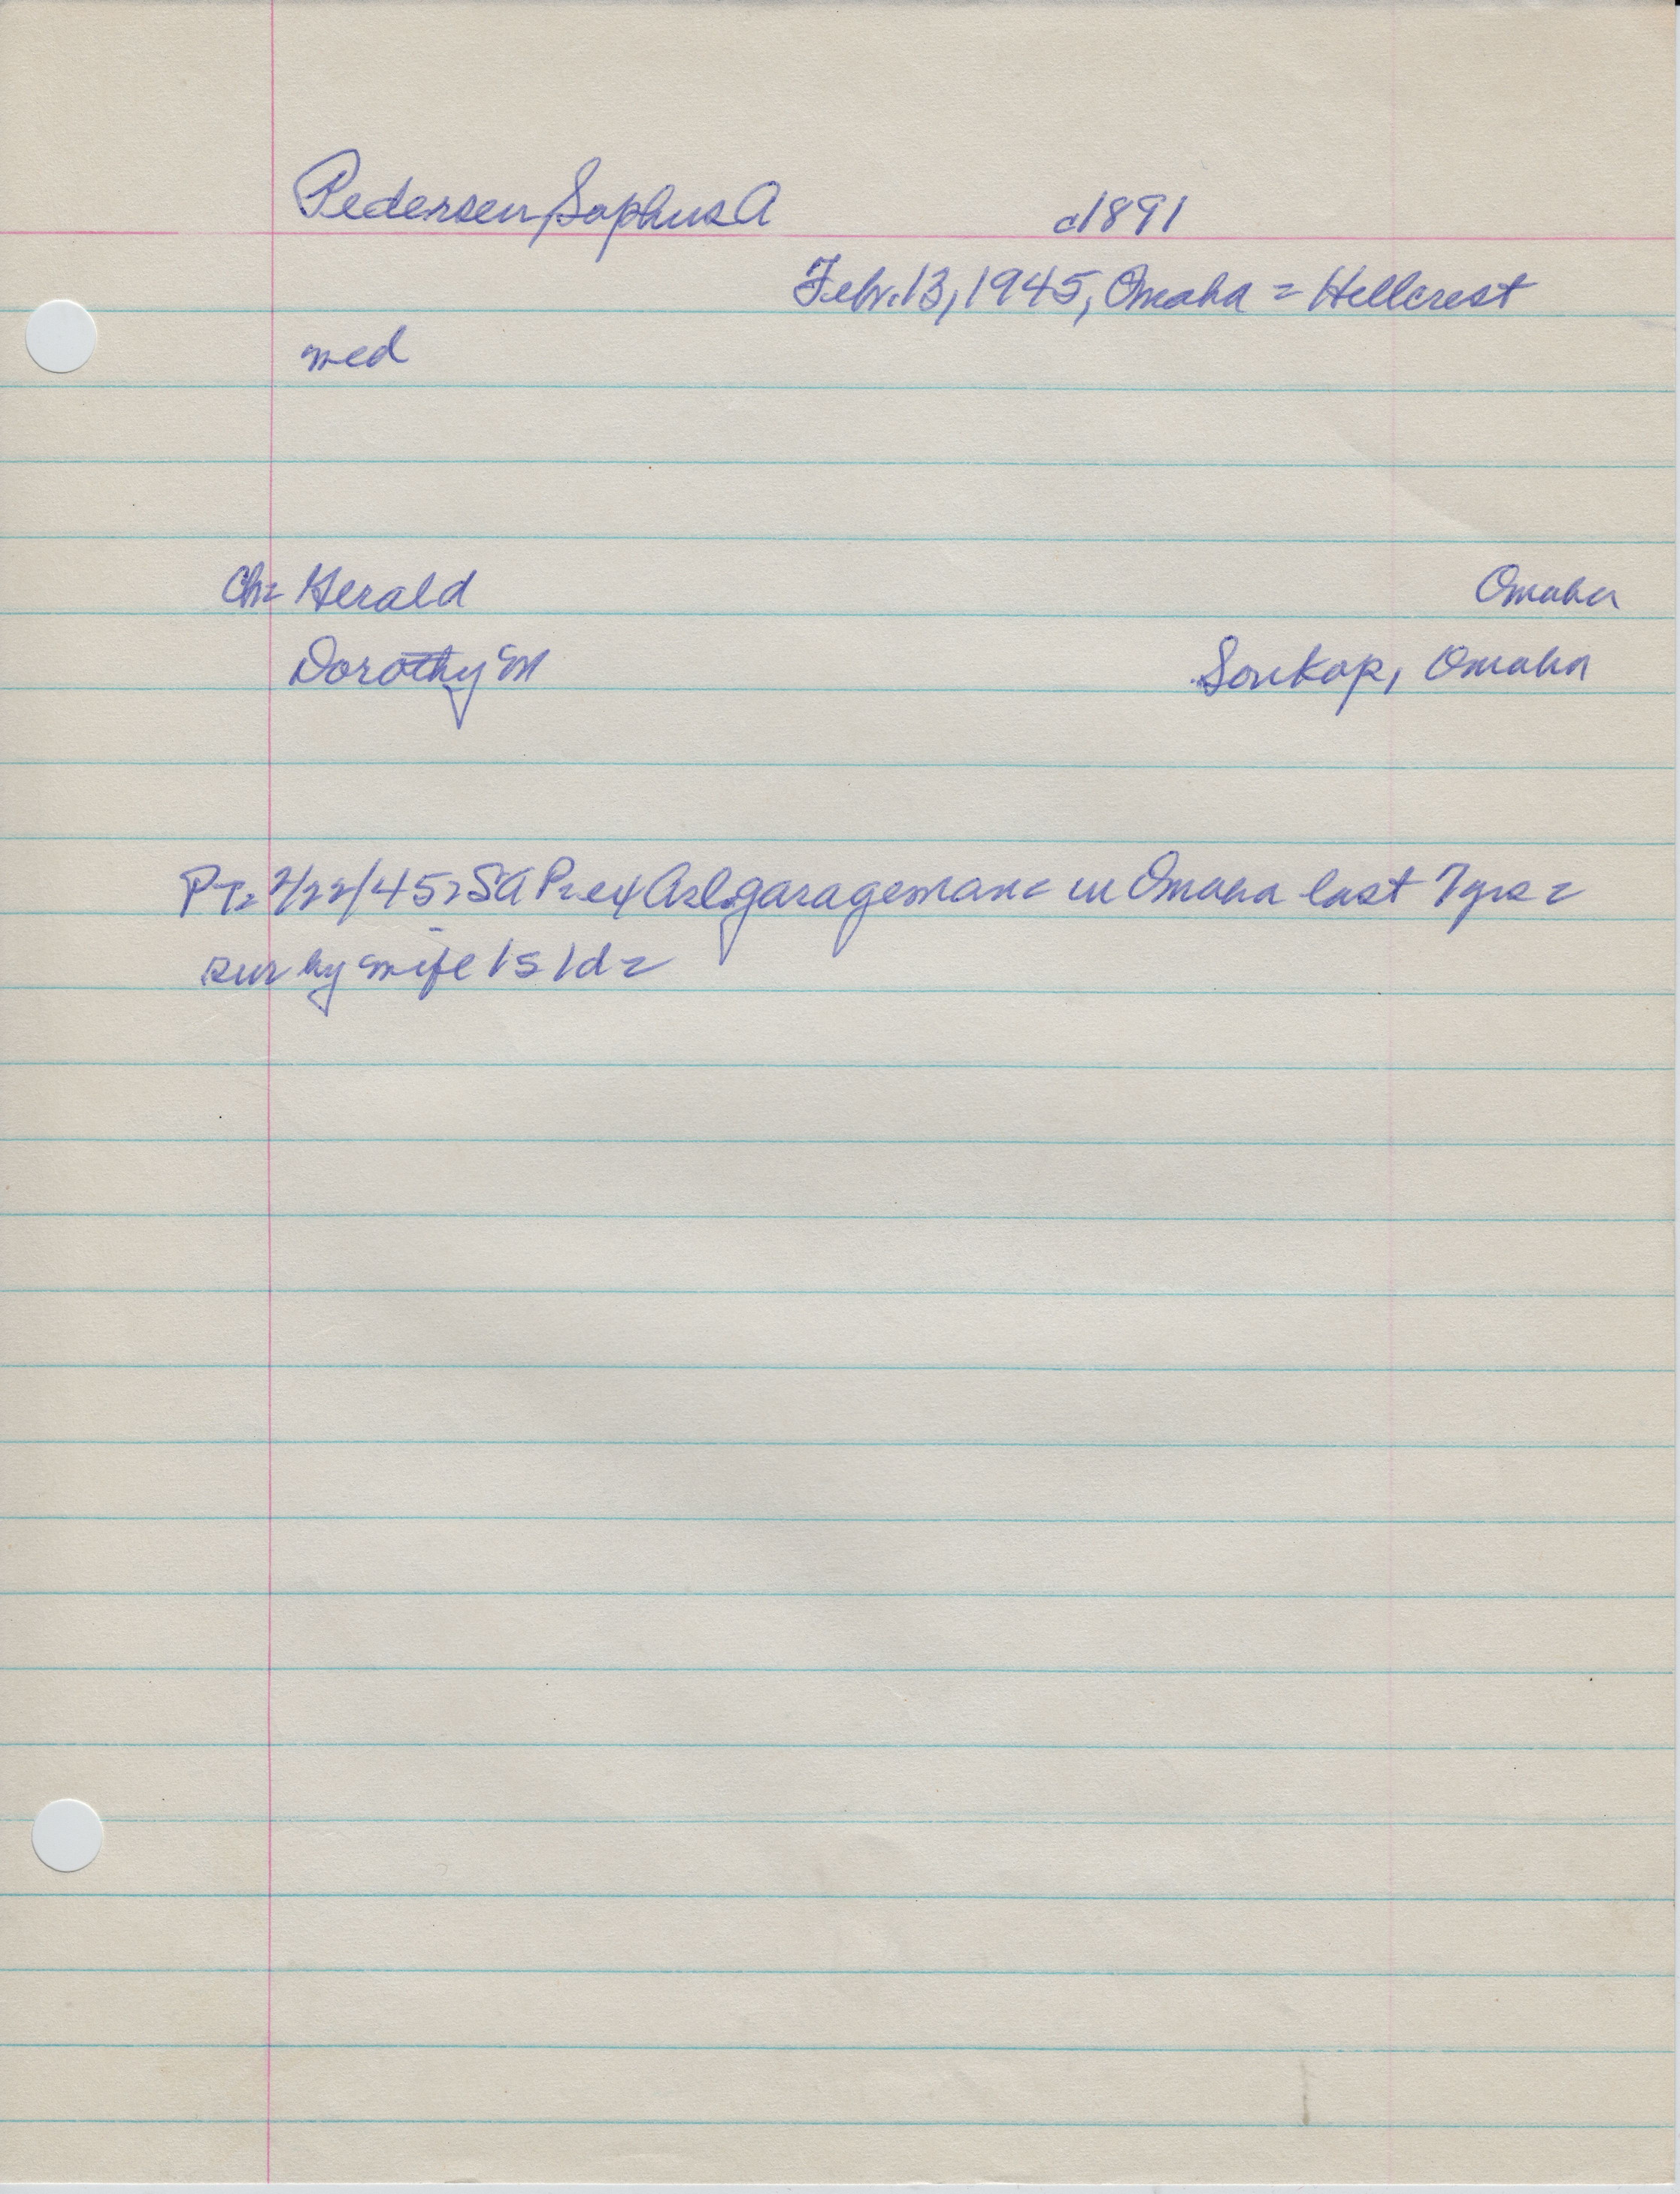 Pedersen, Sophus A c1891
Febr. 13, 1945, Omaha = Hillcrest
med
Ch= Herald Omaha
Dorothy M Soukop, Omaha
PT= 2/22/45= SA P= ex Arl. garageman= in Omaha last 7 yrs=
sur by wife 1s 1d=